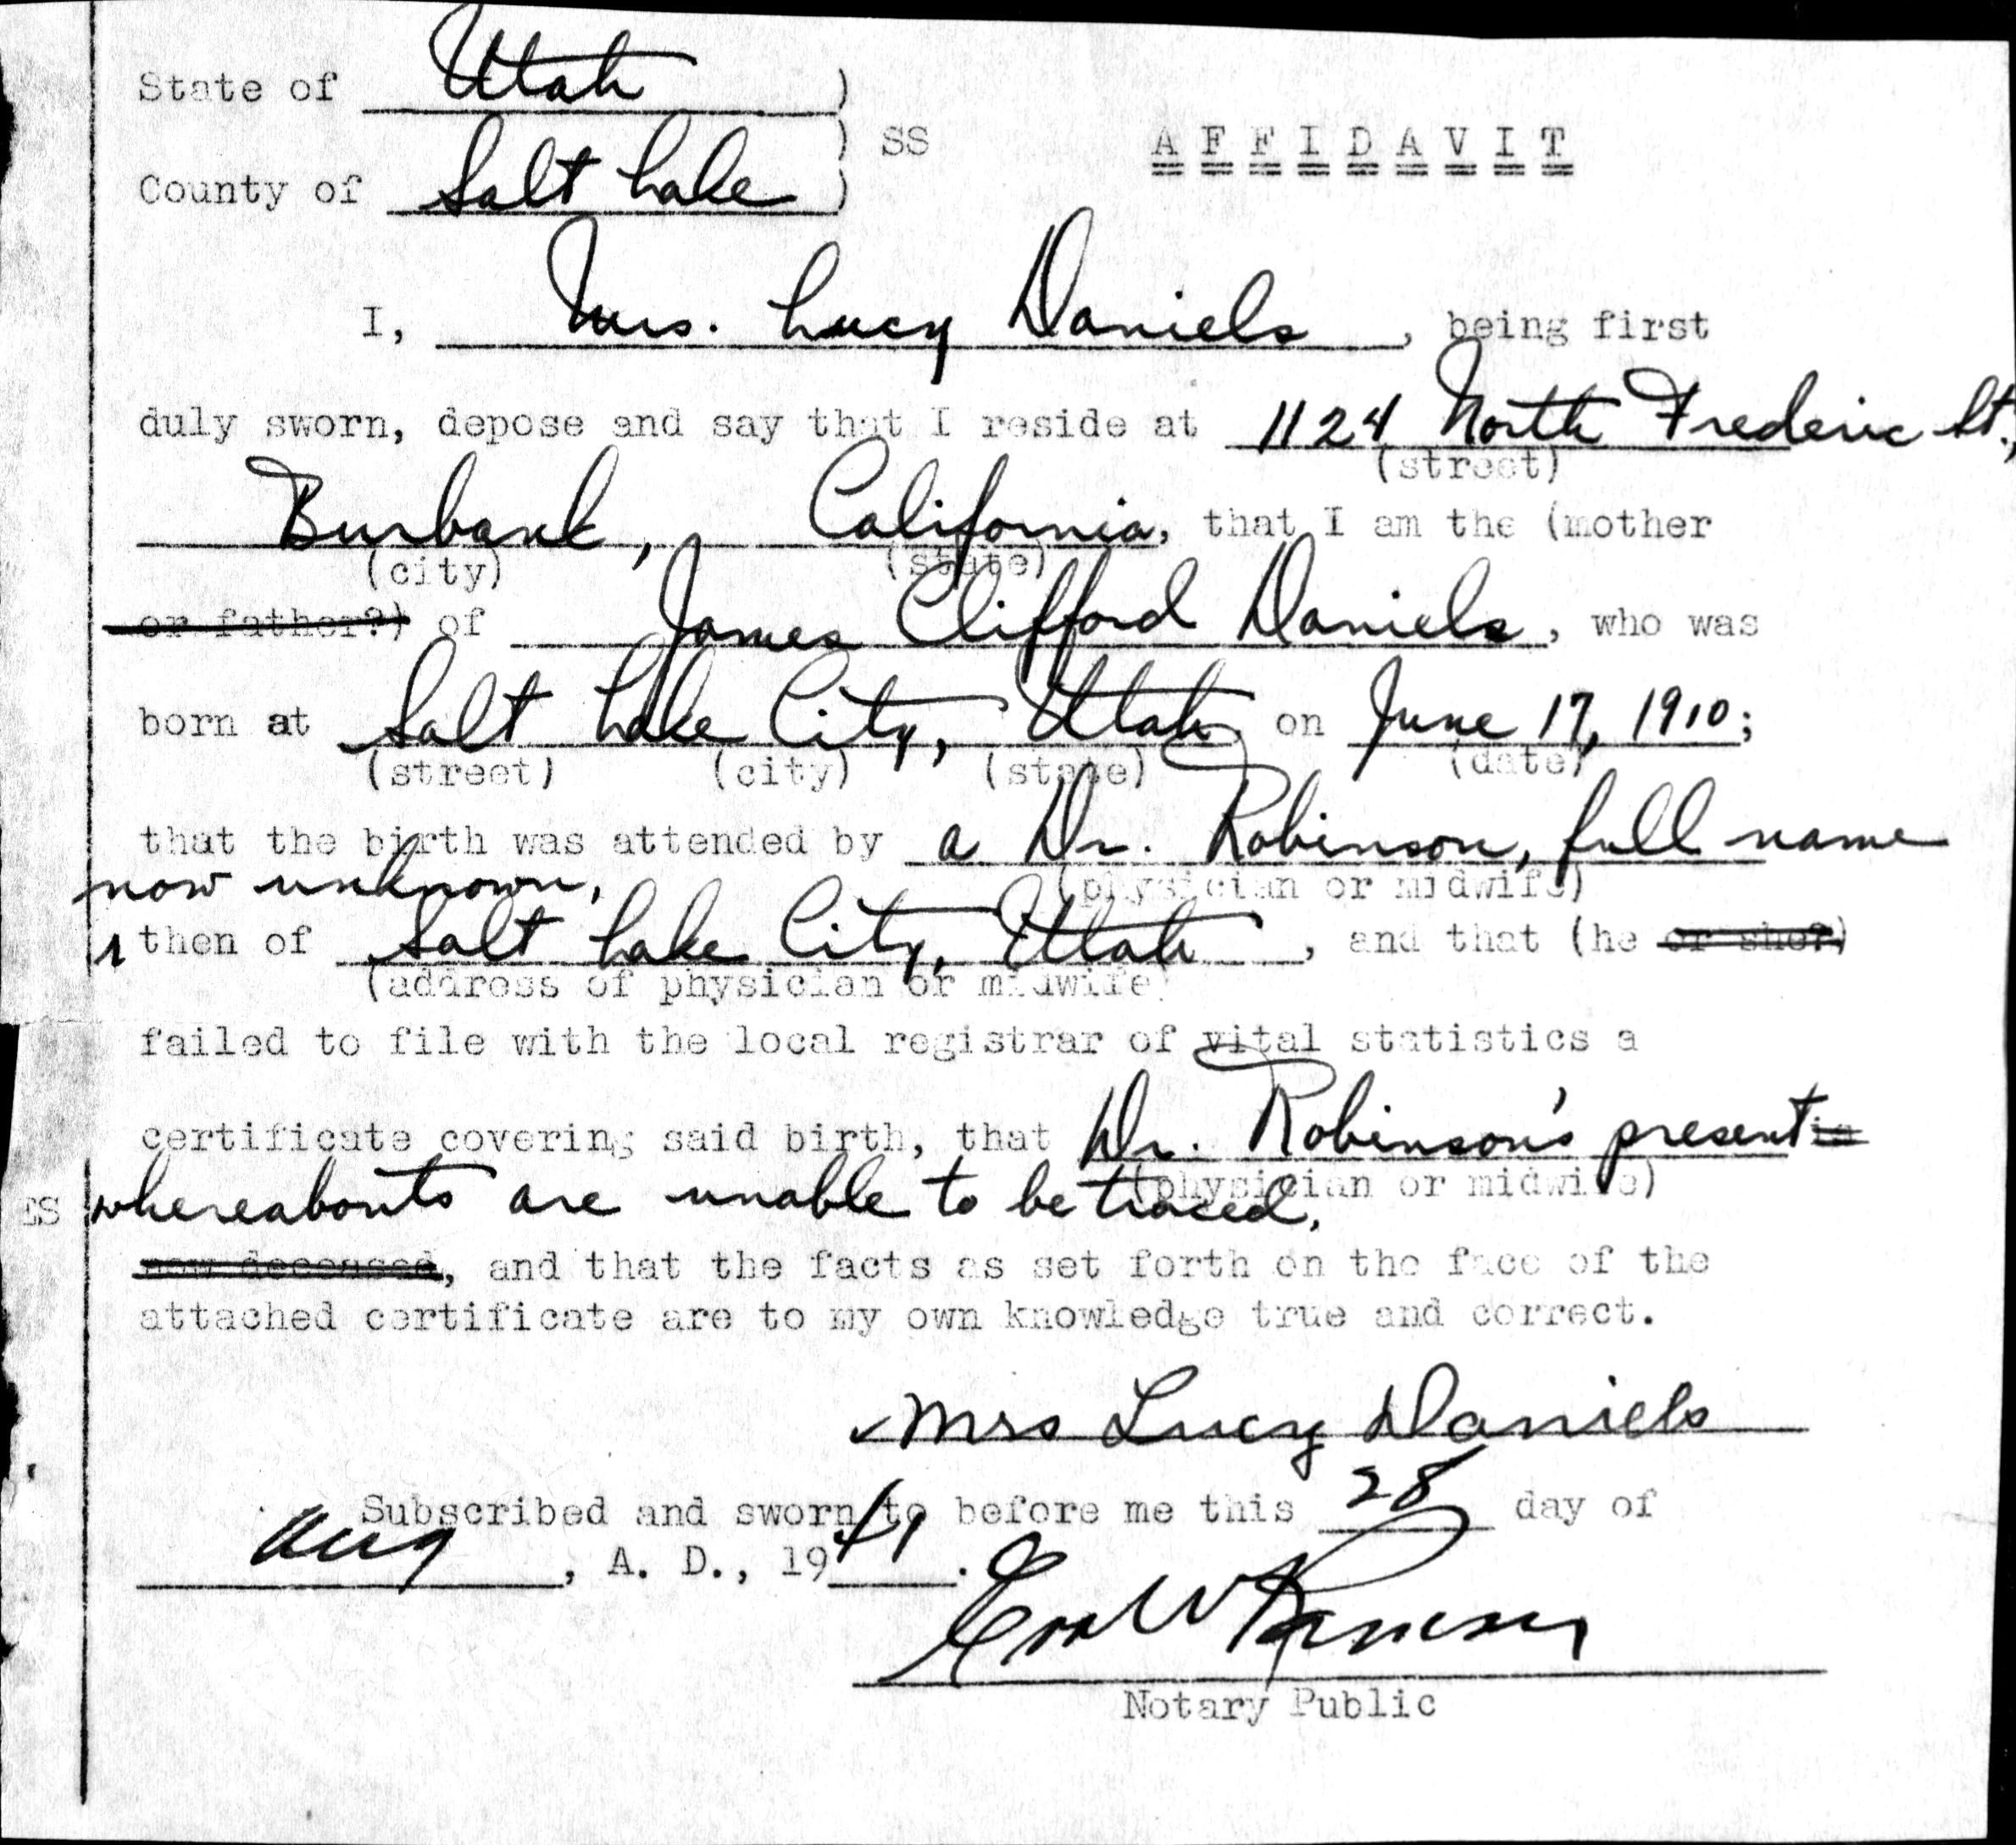 State of Utah )
) SS A F F I D A V I T
County of Salt Lake )
I, Mrs. Lucy Daniels, being first
duly sworn, depose and say that I reside at 1124 North Frederic St.,
(street)
Burbank, California, that I am the (mother
(city) (state)
or father?) of James Clifford Daniels, who was
born at Salt Lake City, Utah on June 17, 1910;
(street) (city) (state) (date)
that the birth was attended by a Dr. Robinson, full name
now unknown, (physician or midwife)
then of Salt Lake City, Utah, and that (he or she?)
(address of physician or midwife)
failed to file with the local registrar of vital statistics a
certificate covering said birth, that Dr. Robinson's present is
(physician or midwife)
ES whereabouts are unable to be traced,
now deceased, and that the facts as set forth on the face of the
attached certificate are to my own knowledge true and correct.
Mrs Lucy Daniels
Subscribed and sworn to before me this 28 day of
Aug, A. D., 1941.
Notary Public